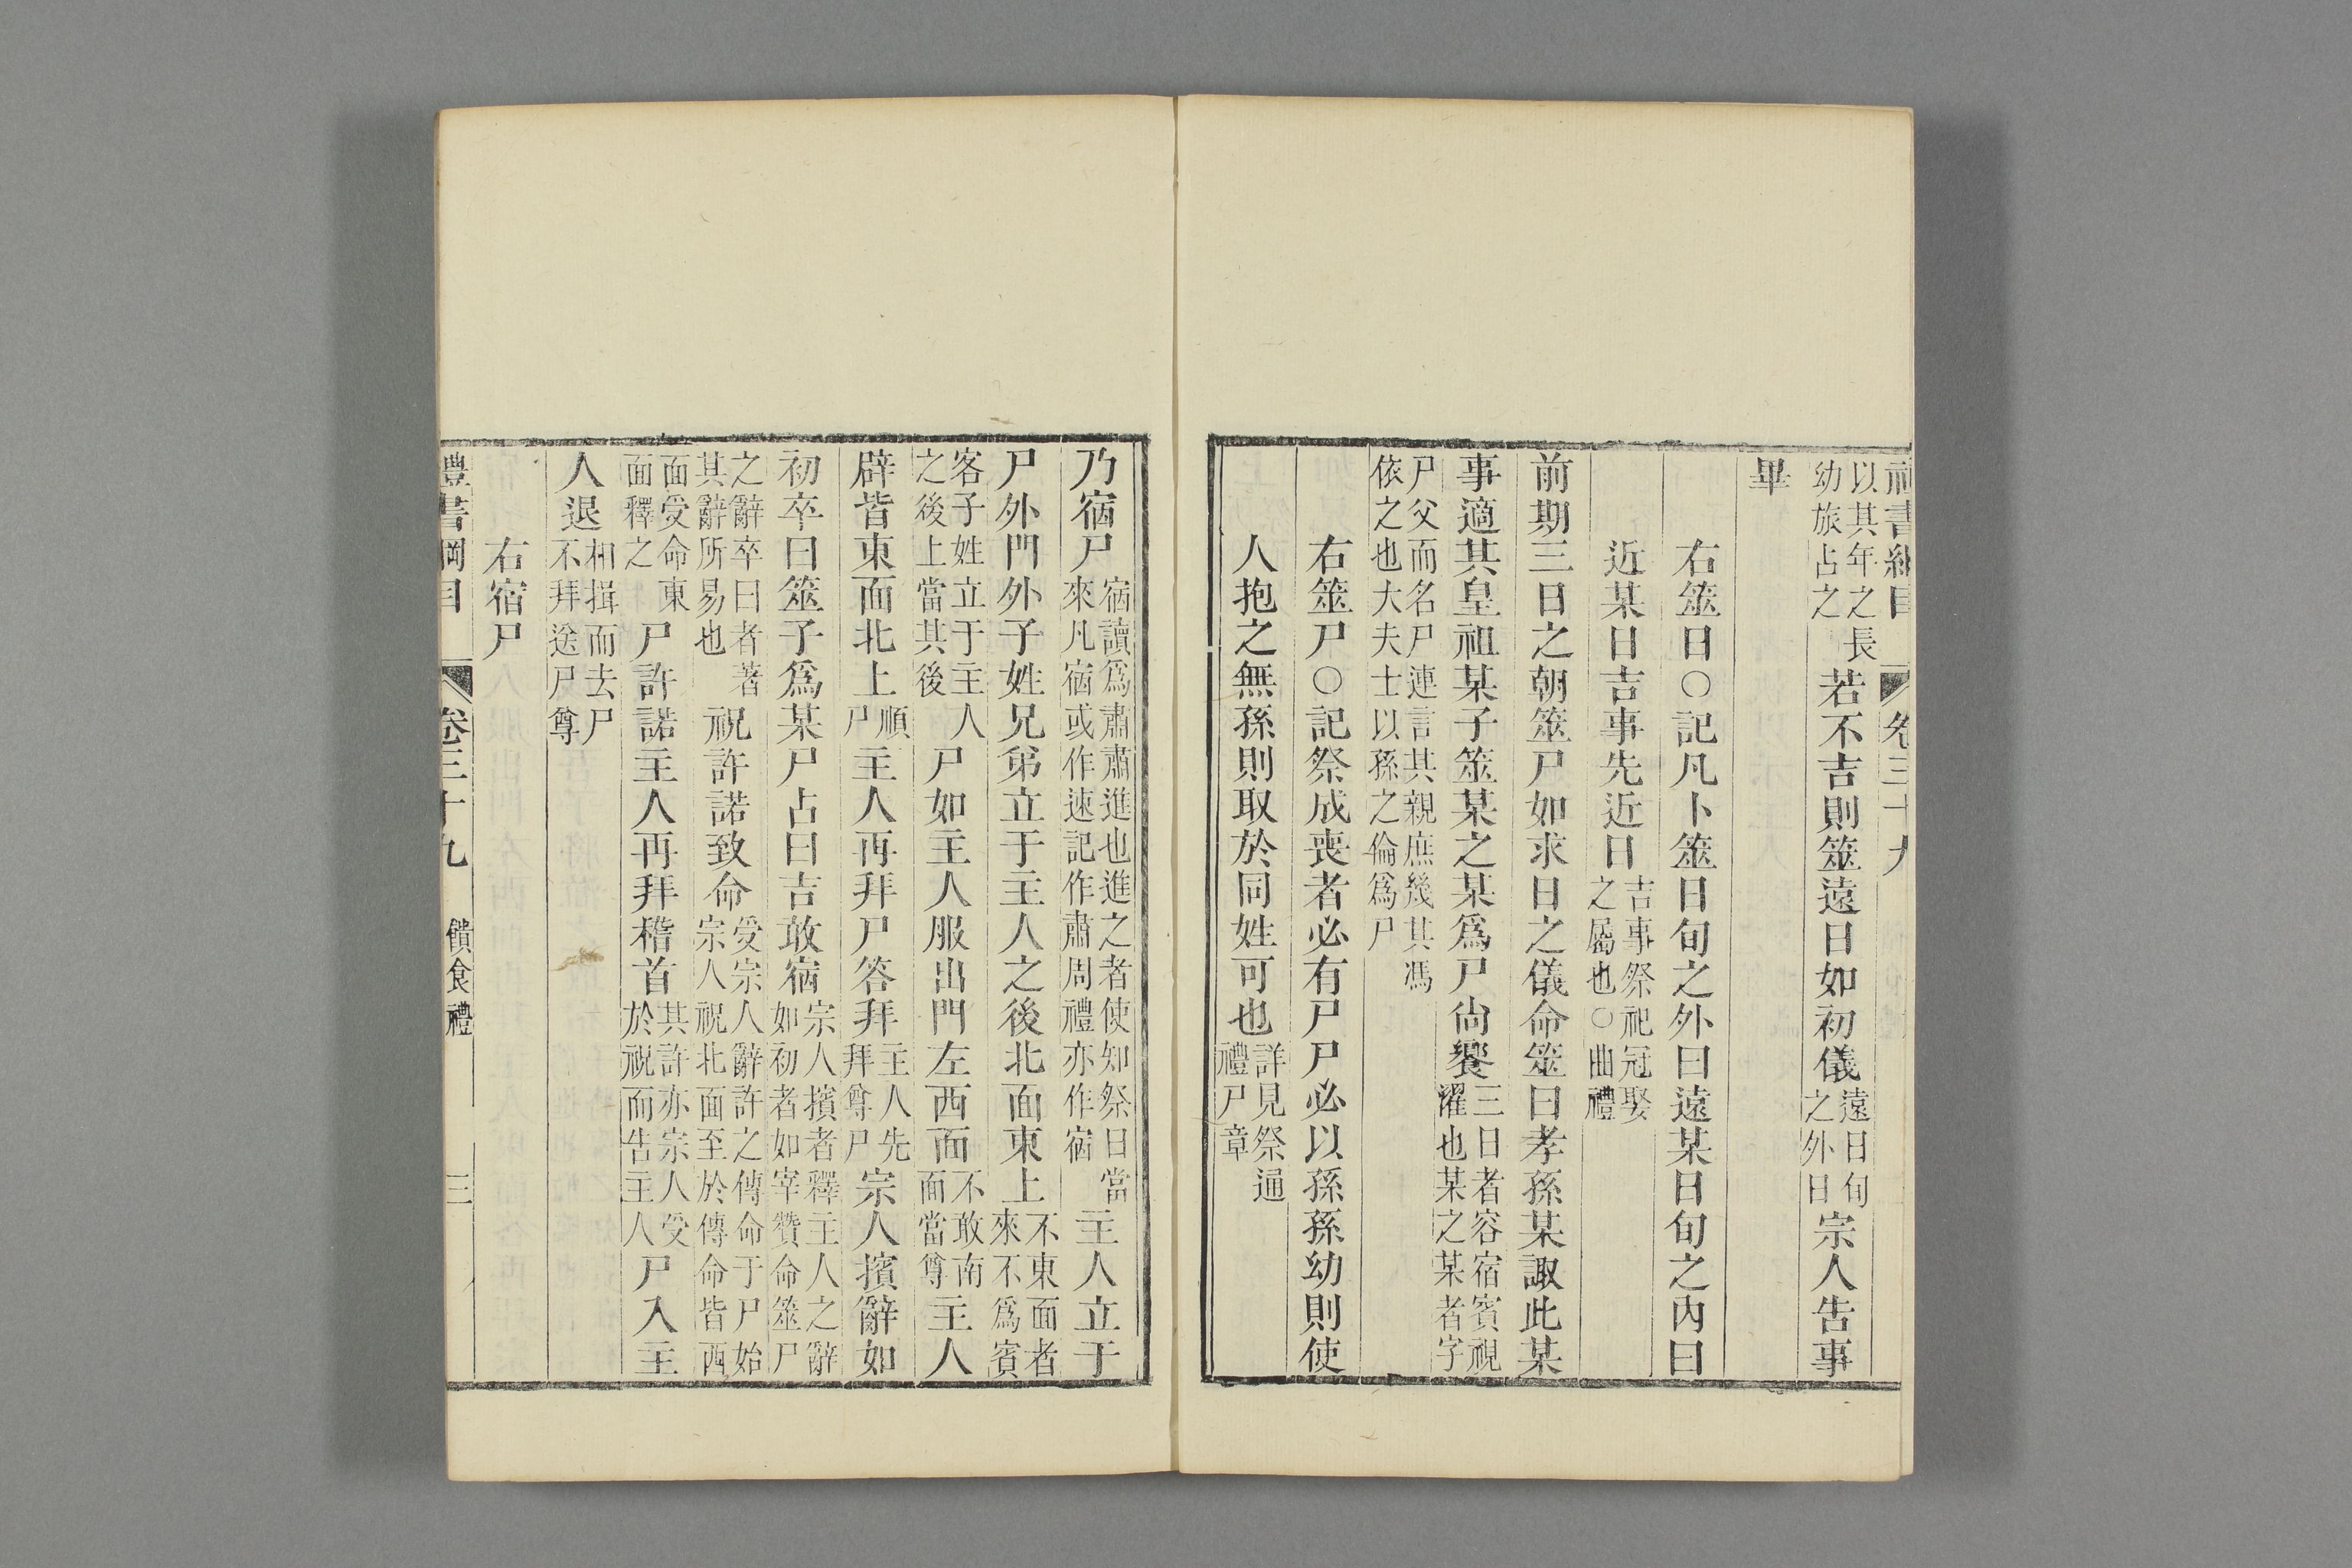 禮書綱目 卷三十九
以其年之長幼旅占之若不吉則筮遠日如初儀遠日旬之外日宗人告事
畢
右筮日○記凡卜筮日旬之外曰遠某日旬之內曰
近某日吉事先近日吉事祭祀冠娶之屬也○曲禮
前期三日之朝筮尸如求日之儀命筮曰孝孫某諏此某
事適其皇祖某子筮某之某爲尸尙饗三日者容宿賓視濯也某之某者字
尸父而名尸連言其親庶幾其馮依之也大夫士以孫之倫爲尸
右筮尸○記祭成喪者必有尸尸必以孫孫幼則使
人抱之無孫則取於同姓可也詳見祭通禮尸章
乃宿尸宿讀爲肅肅進也進之者使知祭日當來凡宿或作速記作肅周禮亦作宿主人立于
尸外門外子姓兄弟立于主人之後北面東上不東面者來不爲賓
客子姓立于主人之後上當其後尸如主人服出門左西面不敢南面當尊主人
辟皆東面北上順尸主人再拜尸答拜主人先拜尊尸宗人擯辭如
初卒曰筮子爲某尸占曰吉敢宿宗人擯者釋主人之辭如初者如宰贊命筮尸
之辭卒曰者著其辭所易也祝許諾致命受宗人辭許之傳命于尸始宗人祝北面至於傳命皆西
面受命東面釋之尸許諾主人再拜稽首其許亦宗人受於祝而告主人尸入主
人退相揖而去尸不拜送尸尊
右宿尸
禮書綱目 卷三十九 饋食禮 三